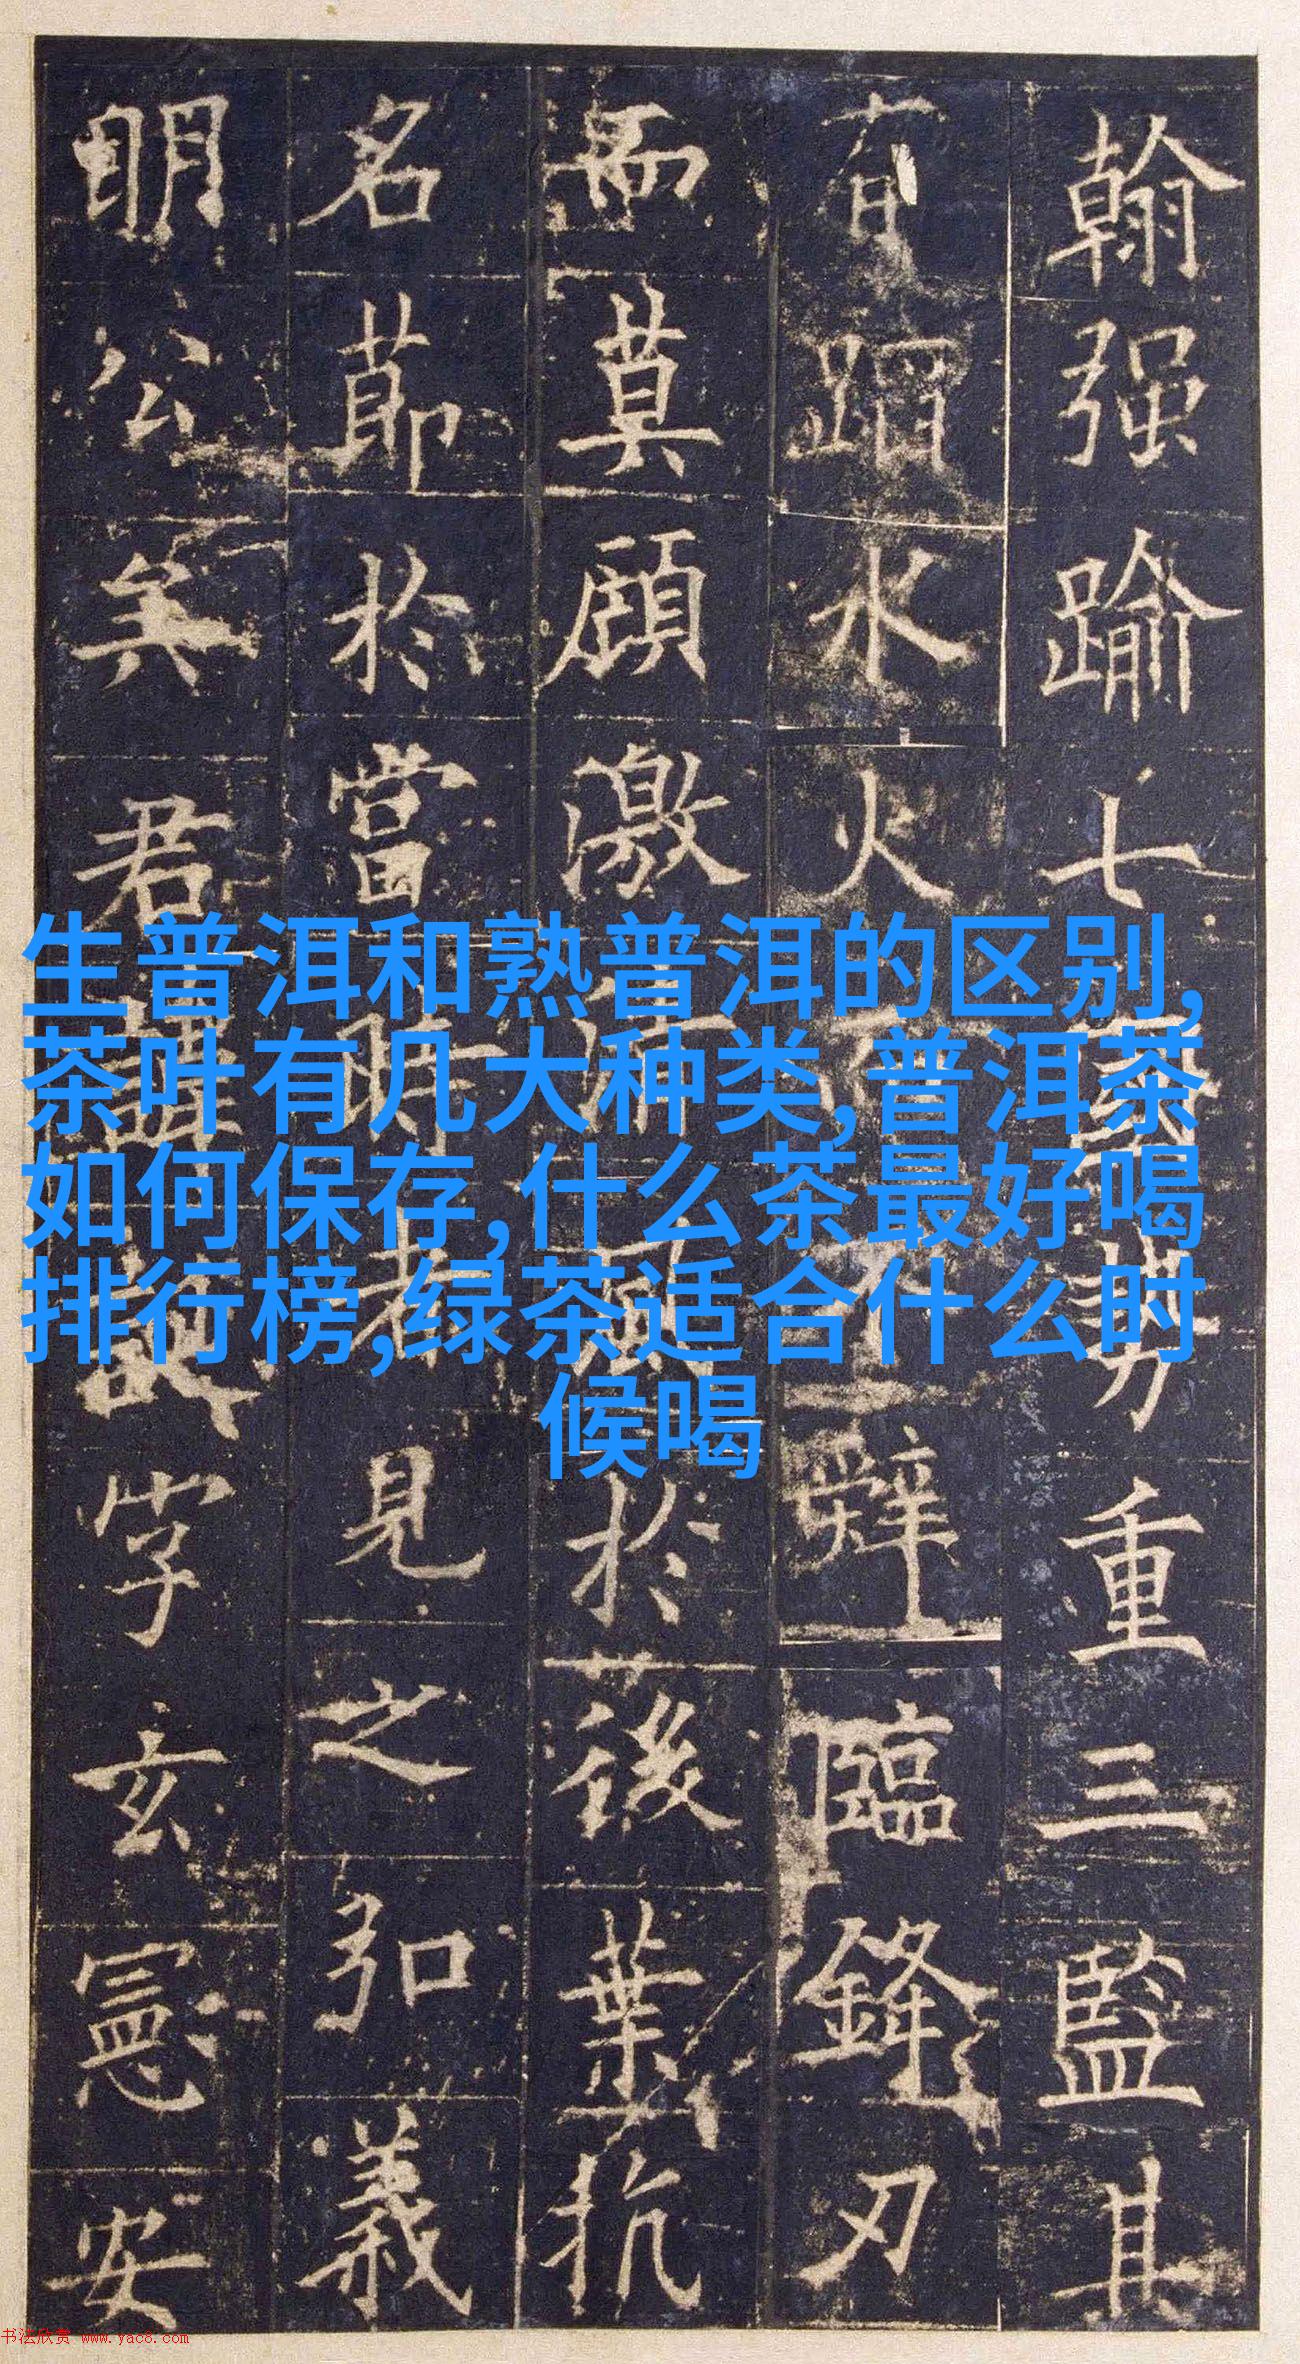 翰强踰七國勢重三監其
有蹈水火而不辭臨鋒刃
而莫顧激清風於後葉抗
名節於當時者見之弘義
明公矣君諱誕字玄憲安
生普洱和熟普洱的区别,
茶叶有几大种类,普洱茶
如何保存,什么茶最好喝
排行榜,绿茶适合什么时
候喝
书法欣赏 www.yac8.com